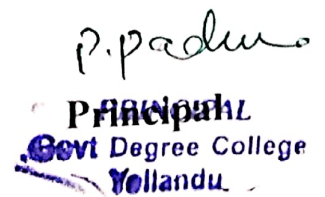 P. Padma
Principal
PRINCIPAL
Govt Degree College
Yellandu